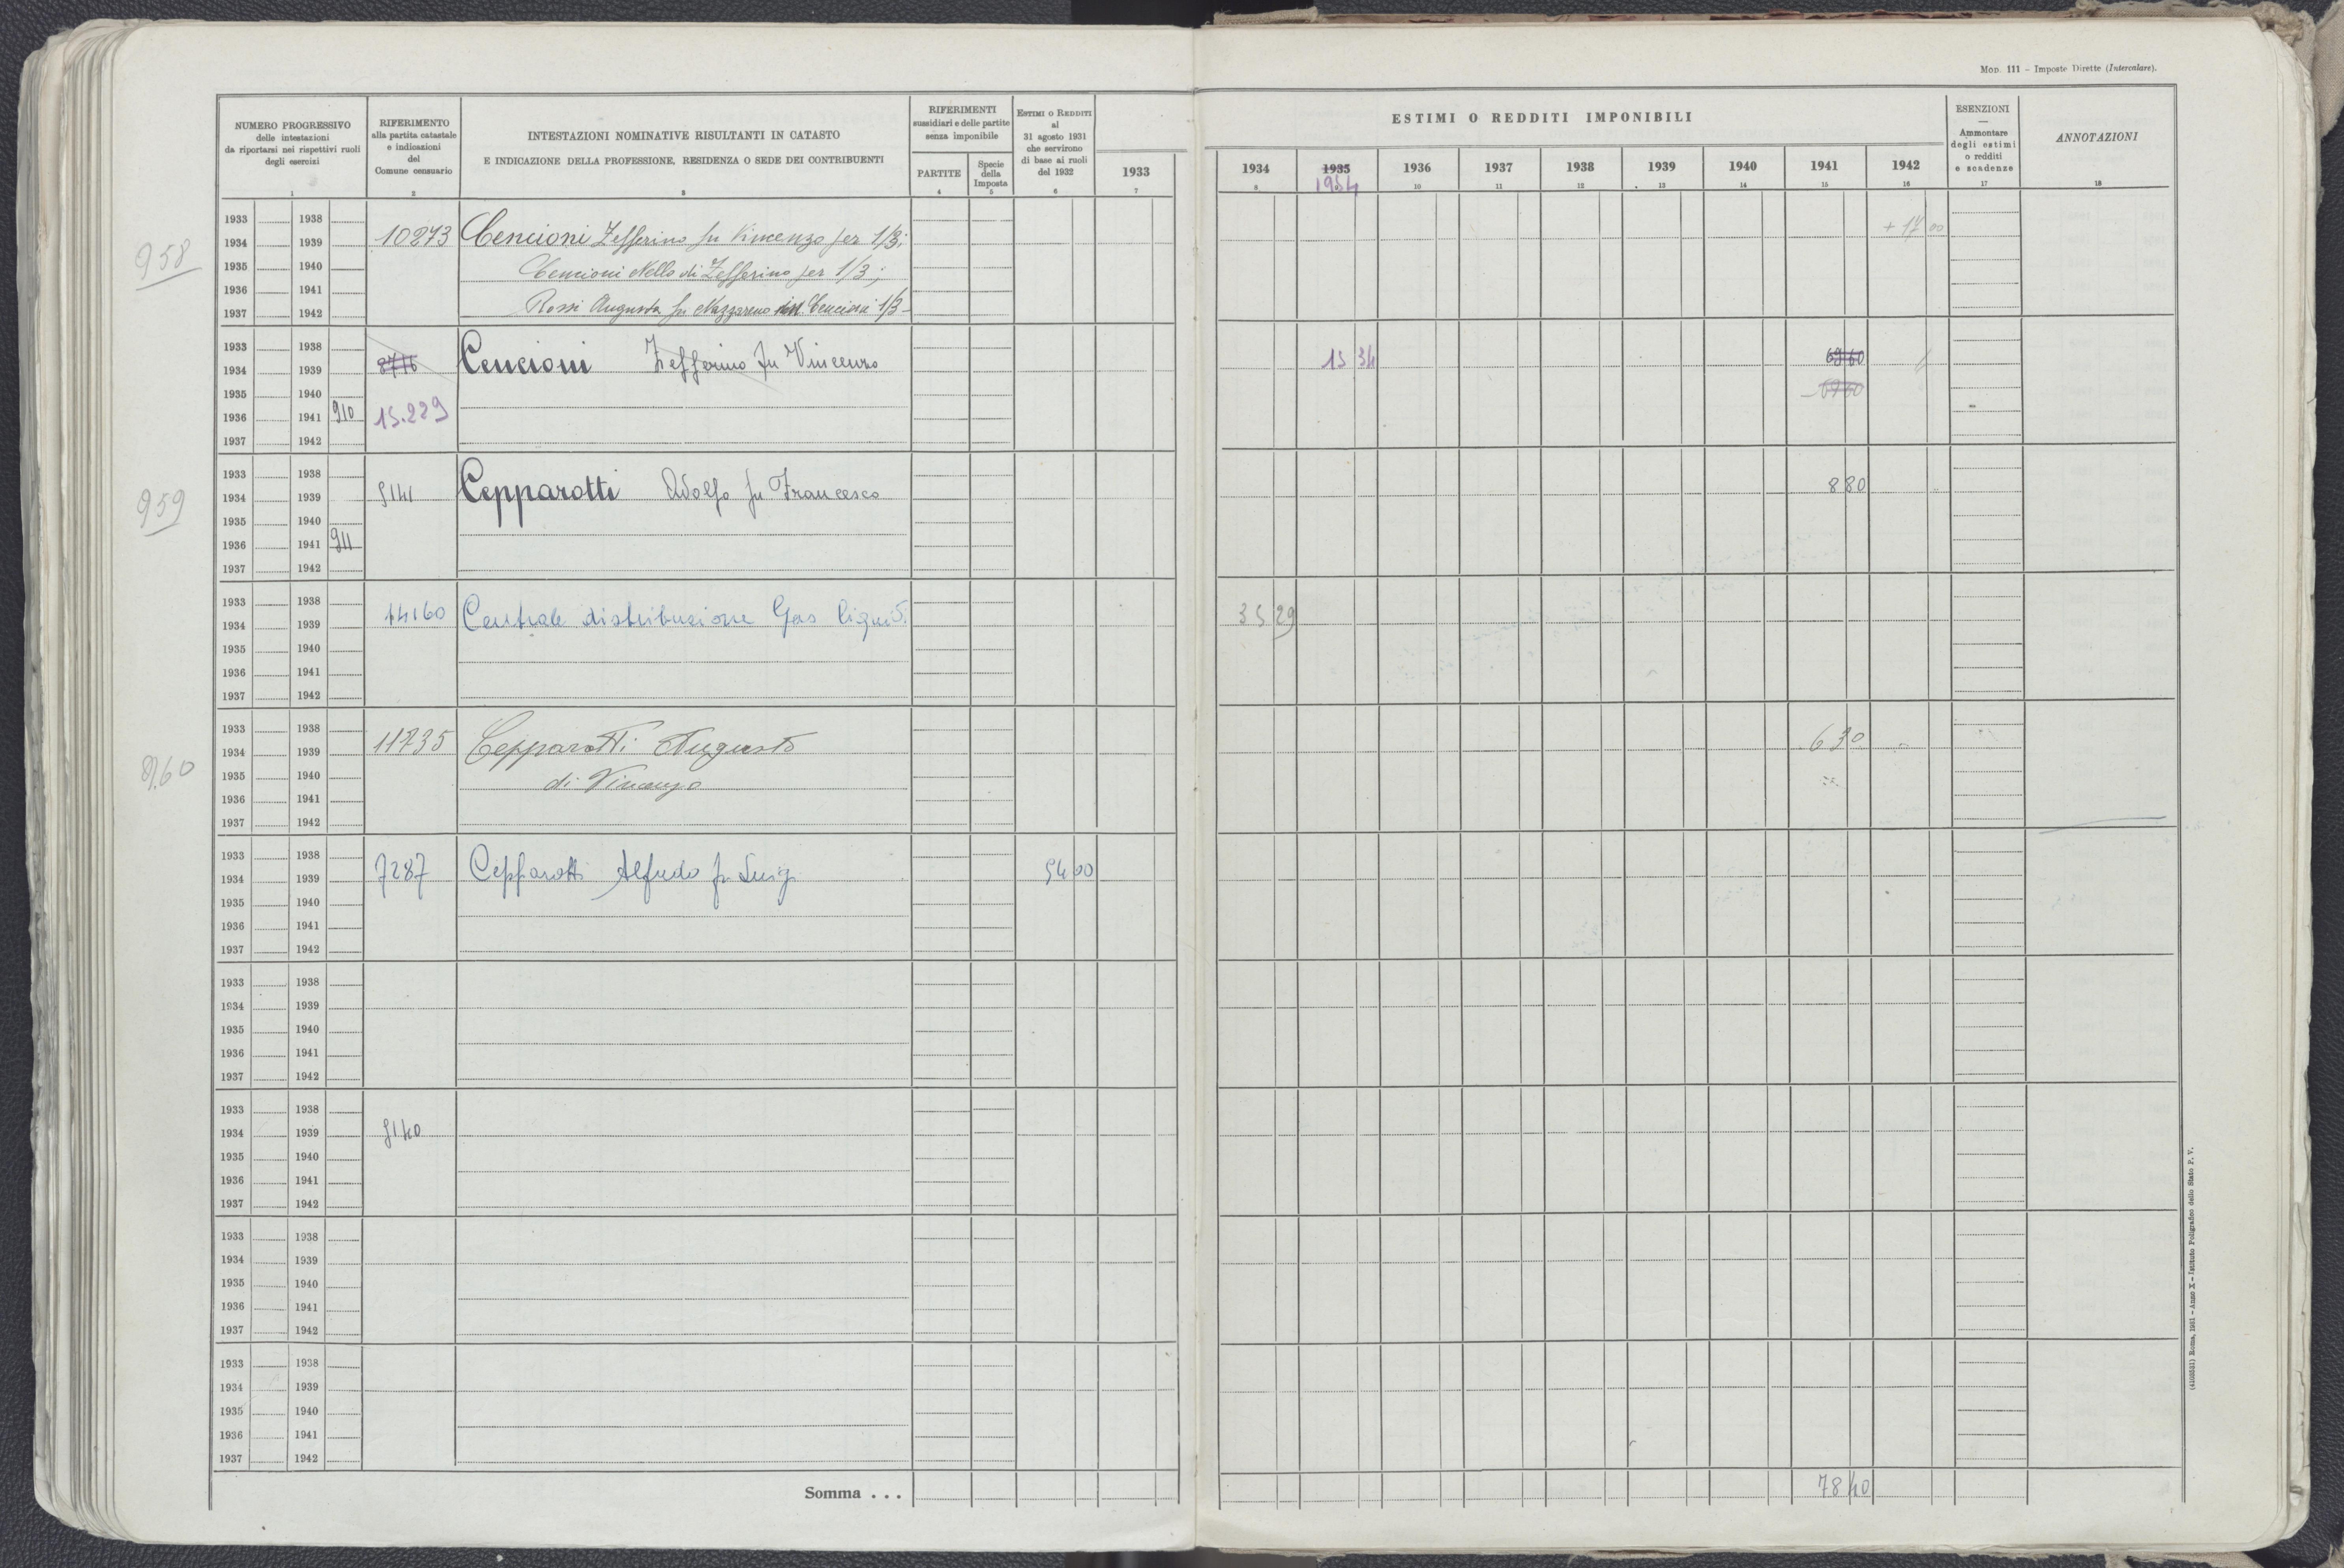 Mod. 111 - Imposte Dirette (Intercalare).
NUMERO PROGRESSIVO
delle intestazioni
da riportarsi nei rispettivi ruoli
degli esercizi
1
RIFERIMENTO
alla partita catastale
e indicazioni
del
Comune censuario
2
INTESTAZIONI NOMINATIVE RISULTANTI IN CATASTO
E INDICAZIONE DELLA PROFESSIONE, RESIDENZA O SEDE DEI CONTRIBUENTI
3
RIFERIMENTI
sussidiari e delle partite
senza imponibile
PARTITE
4
Specie
della
Imposta
5
ESTIMI O REDDITI
al
31 agosto 1931
che servirono
di base ai ruoli
del 1932
6
1933
7
ESTIMI O REDDITI IMPONIBILI
1934 1935 1936 1937 1938 1939 1940 1941 1942
1954
8 10 11 12 13 14 15 16
ESENZIONI
—
Ammontare
degli estimi
o redditi
e scadenze
17
ANNOTAZIONI
18
958
1933 1938
1934 1939 10273 Cencioni Zefferino fu Vincenzo per 1/3; + 17 00
1935 1940 Cencioni Nello di Zefferino per 1/3;
1936 1941
1937 1942 Rossi Augusta fu Nazzareno in Cencioni 1/3
1933 1938
1934 1939 8776 Cencioni Zefferino fu Vincenzo 15 34 69 60
1935 1940
1936 1941 910 15.229
1937 1942
959
1933 1938
1934 1939 9141 Cepparotti Adolfo fu Francesco 8 80
1935 1940
1936 1941 911
1937 1942
1933 1938
1934 1939 14160 Centrale distribuzione Gas liquid. 35 29
1935 1940
1936 1941
1937 1942
960
1933 1938
1934 1939 11735 Cepparotti Augusto 6 30
1935 1940 di Vincenzo
1936 1941
1937 1942
1933 1938
1934 1939 7287 Cepparotti Alfredo fu Luigi 94 00
1935 1940
1936 1941
1937 1942
1933 1938
1934 1939
1935 1940
1936 1941
1937 1942
1933 1938
1934 1939 9140
1935 1940
1936 1941
1937 1942
1933 1938
1934 1939
1935 1940
1936 1941
1937 1942
1933 1938
1934 1939
1935 1940
1936 1941
1937 1942
Somma . . . 78 40
(4103531) Roma, 1931 - Anno X - Istituto Poligrafico dello Stato P. V.